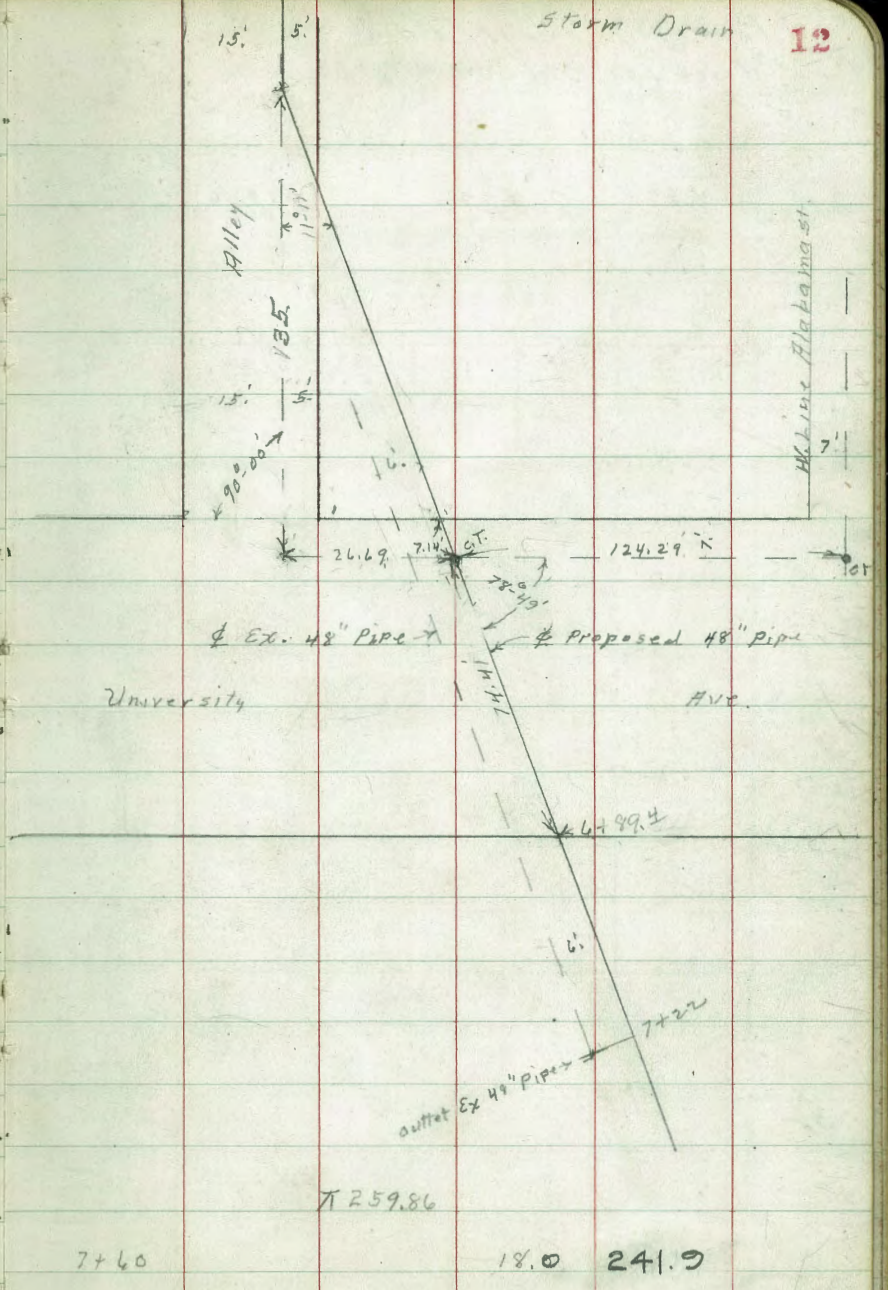 Storm Drain
12
15'.
5.'
11°-11'
Alley
135.
15.'
5'
90°-00'
W. Line Alabama st.
7'
6'.
26.69
7.14'
S.T.
124.29'
7.
78°-49'
₵ Ex. 48" Pipe
₵ Proposed 48" Pipe
74.41
University
Ave.
6+89.4
6'.
7+22
outlet Ex 48" Pipe
⊼ 259.86
7+60
18.0
241.9